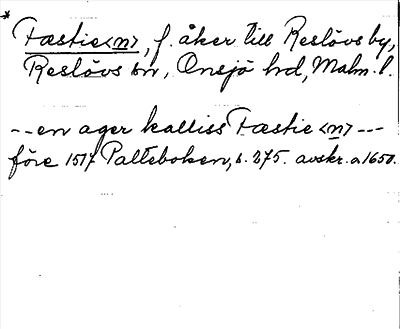 * Fæstie<n>, f. åker till Reslövs by,
Reslövs sn, Onsjö hd, Malm. l.
-- en ager kalliss Fæstie <n> ---
före 1517 Palteboken, s. 275. avskr. a 1650.